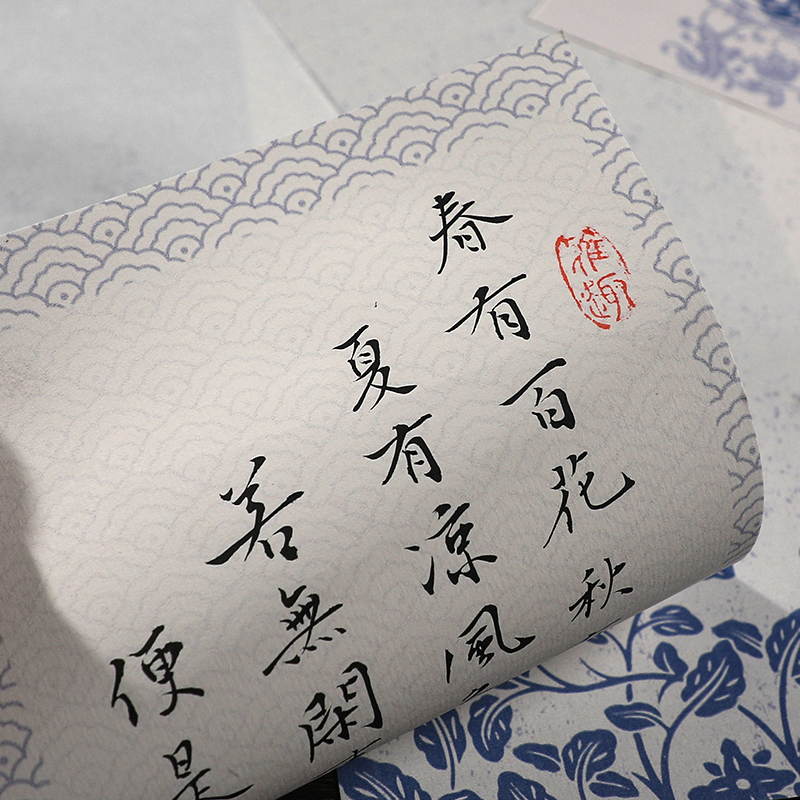 雅趣
春有百花秋
夏有涼風
若無閑
便是